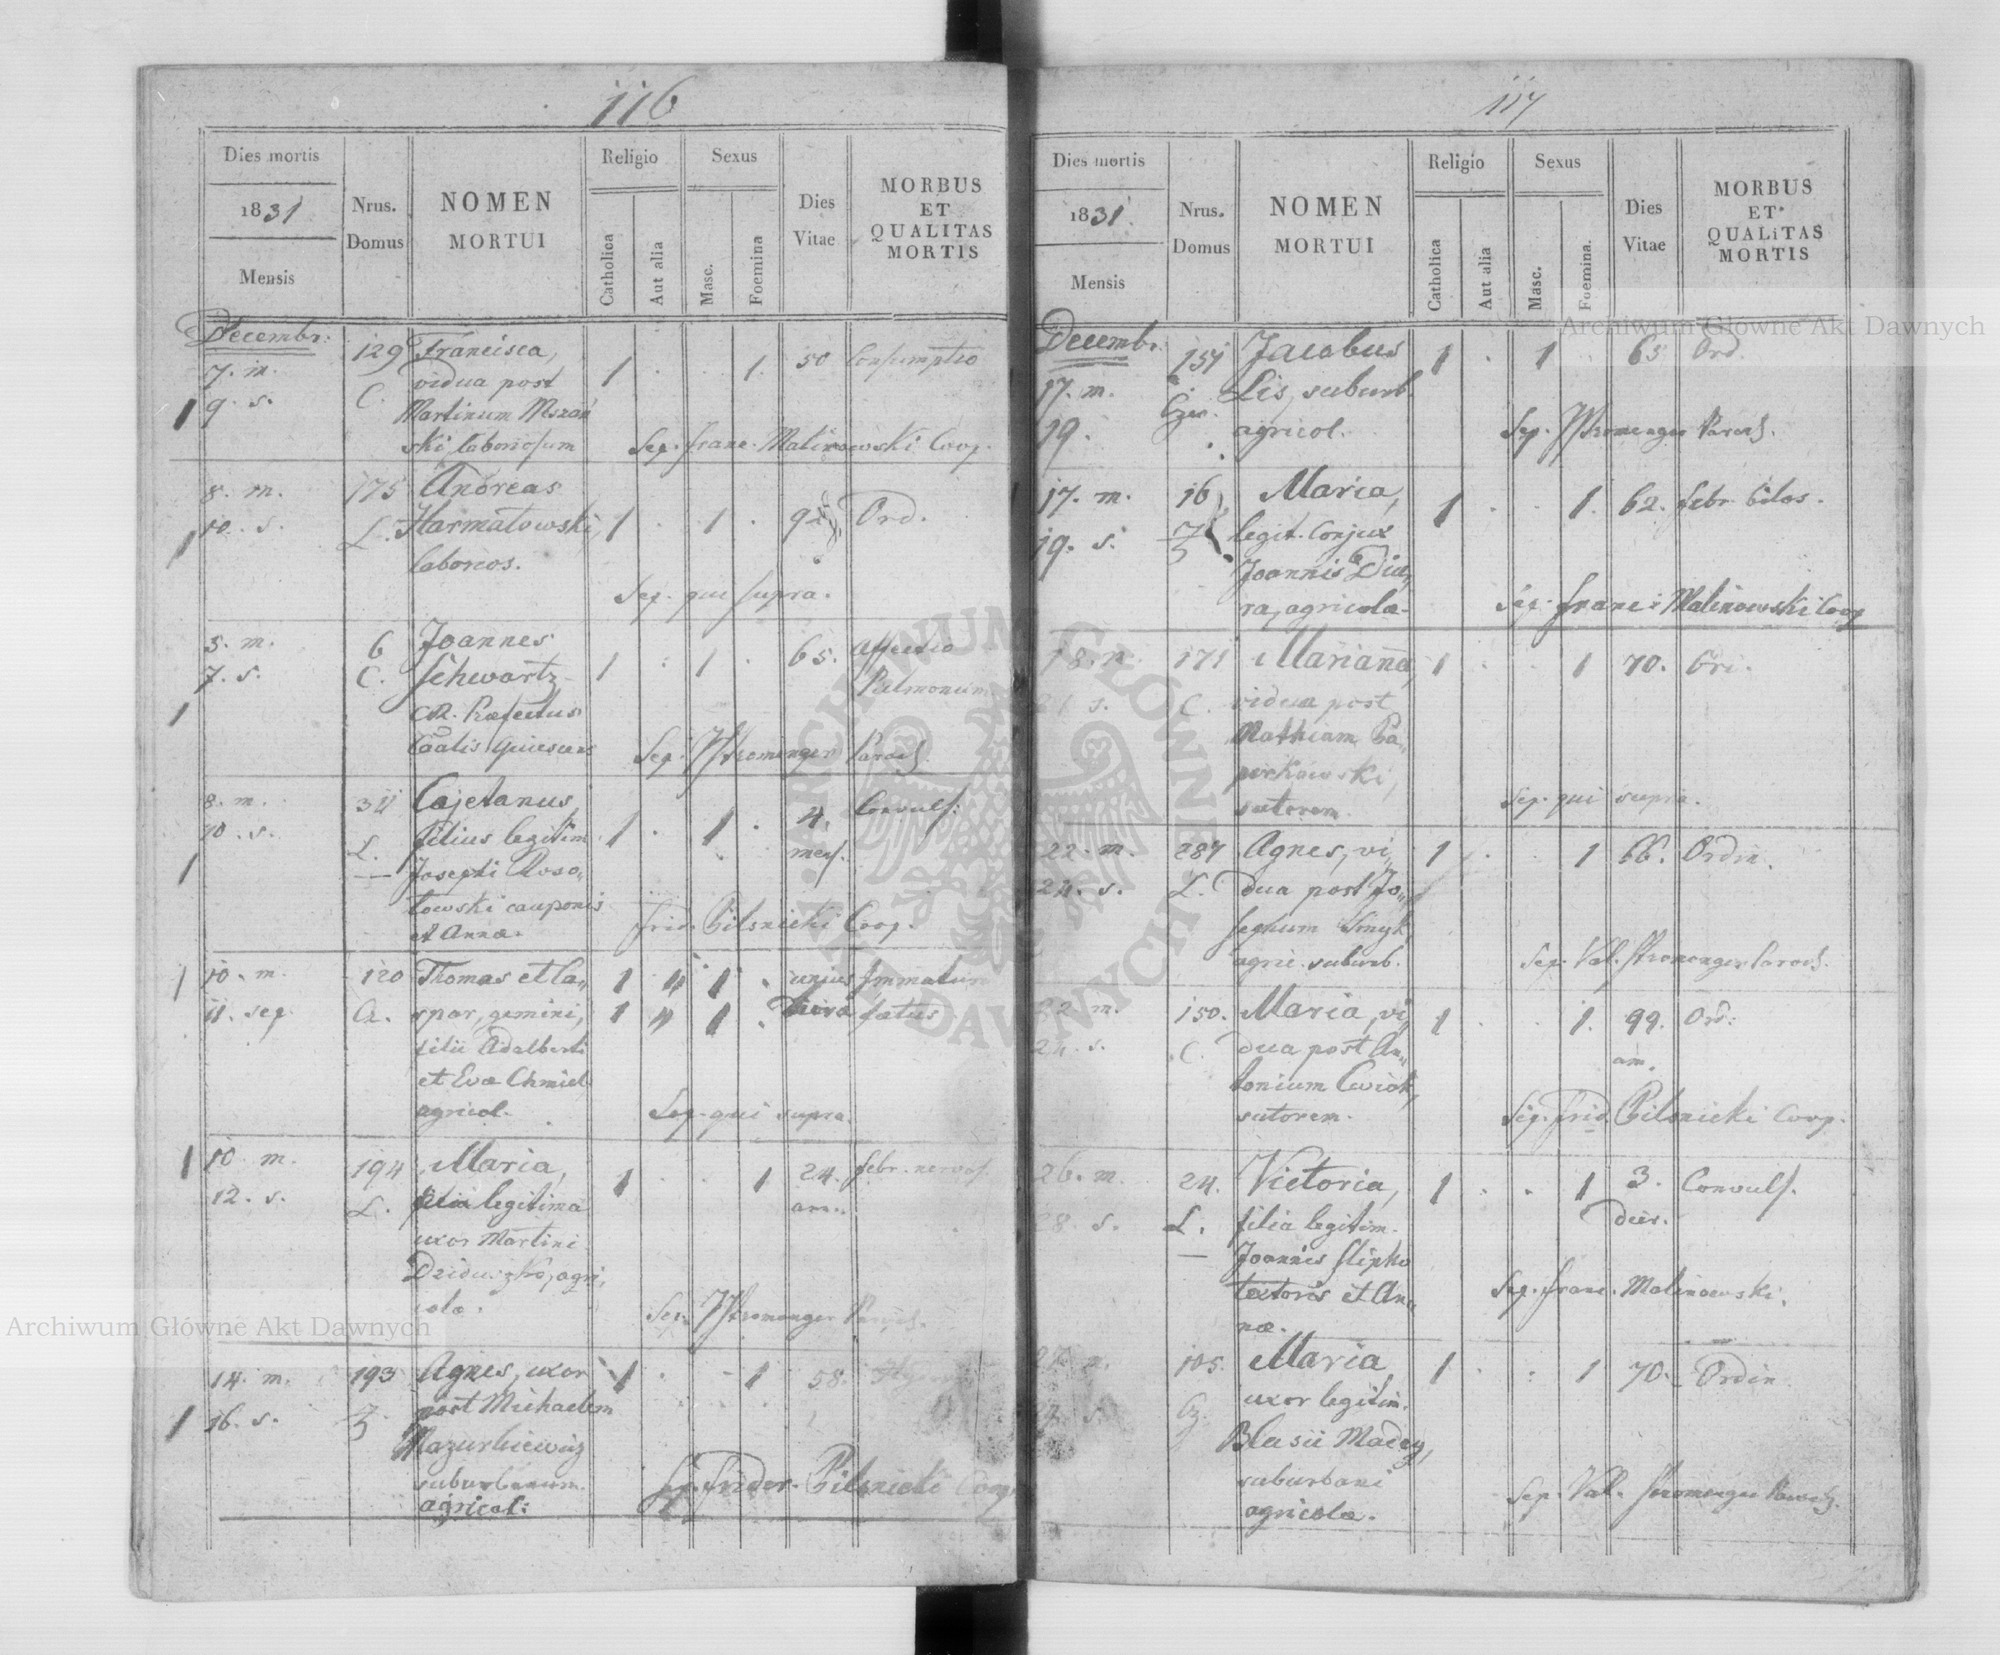 116
Dies mortis
1831
Mensis
Nrus. Domus
NOMEN MORTUI
Religio
Catholica
Aut alia
Sexus
Masc.
Foemina
Dies Vitae
MORBUS ET QUALITAS MORTIS
Decembr:
7. m. 129 Francisca, 1 . . 1. 50 Consumptio
9. s. C. vidua post
1 Martinum
ski laboriosum Sep. Franc. Malinowski Coop.
8. m. 175 Andreas
10. s. L. Harmatowski, 1 . 1 . 92 Ord.
1 laborios.
Sep. qui supra.
5. m. 6 Joannes 65. Affectio
7. s. C. Schwartz 1 . 1 . Pulmonum
1 CR. Praefectus
quiescens Sep. Stromenger Paroch.
8. m. Cajetanus, 4. Convuls:
10. s. L. filius legitim. 1 . 1 . mens.
1 Josephi Roso-
towski cauponis
et Annae. Frid. Pilsnicki Coop.
1 10. m. 120 Thomas et Ca- 1 1 . unius Immatur
11. sep. A. spar, gemini, 1 1 . fatus
filii Adalberti
et Evae Chmiel
agricol. Sep. qui supra.
1 10. m. 194 Maria, 1 . . 1 24. febr. nervos.
12. s. L. legitima ann.
uxor Martini
agri-
colae. Sep. Stromenger Paroch.
14. m. 193 Agnes, uxor 1 . - 1 58.
1 16. s. Z. post Michaelem
Mazurkiewicz
suburbanum
agricol: Sep. Frider. Pilsnicki Coop.
117
Dies mortis
1831
Mensis
Nrus. Domus
NOMEN MORTUI
Religio
Catholica
Aut alia
Sexus
Masc.
Foemina.
Dies Vitae
MORBUS ET QUALITAS MORTIS
Decembr.
17. m. 157 Jacobus 1 . 1 . 65 Ord.
19. Lis, suburb.
agricol. Sep. Stromenger Paroch.
17. m. 16 Maria, 1 . . 1. 62. febr. bilos.
19. s. Z legit. Conjux
Joannis
ra, agricola. Sep. Franc: Malinowski Coop
18. m. 171 Marianna, 1 . . 1 70. Ori.
21 s. C. vidua post
Mathiam Pa-
pirkowski,
sutorem. Sep. qui supra.
22. m. 287 Agnes, vi- 1 . . 1 66. Ordin.
24. s. L. dua post Jo-
sephum Smyk,
agric. suburb. Sep. Val. Stromenger Paroch.
22 m. 150. Maria, vi- 1 . . 1. 99. Ord:
24. s. C. dua post An- an.
tonium Cwiok,
sutorem. Sep. Frid. Pilsnicki Coop.
26. m. 24. Victoria, 1 . . 1 3. Convuls.
28. s. L. filia legitim. dier.
Joannis Slipko
textoris et An-
nae. Sep. Franc. Malinowski.
27. 105. Maria 1 . : 1 70. Ordin
s. Cz. uxor legitim.
Blasii Madey,
suburbani
agricolae. Sep. Val. Stromenger Paroch.
Archiwum Główne Akt Dawnych
Archiwum Główne Akt Dawnych
ARCHIWUM GŁÓWNE AKT DAWNYCH